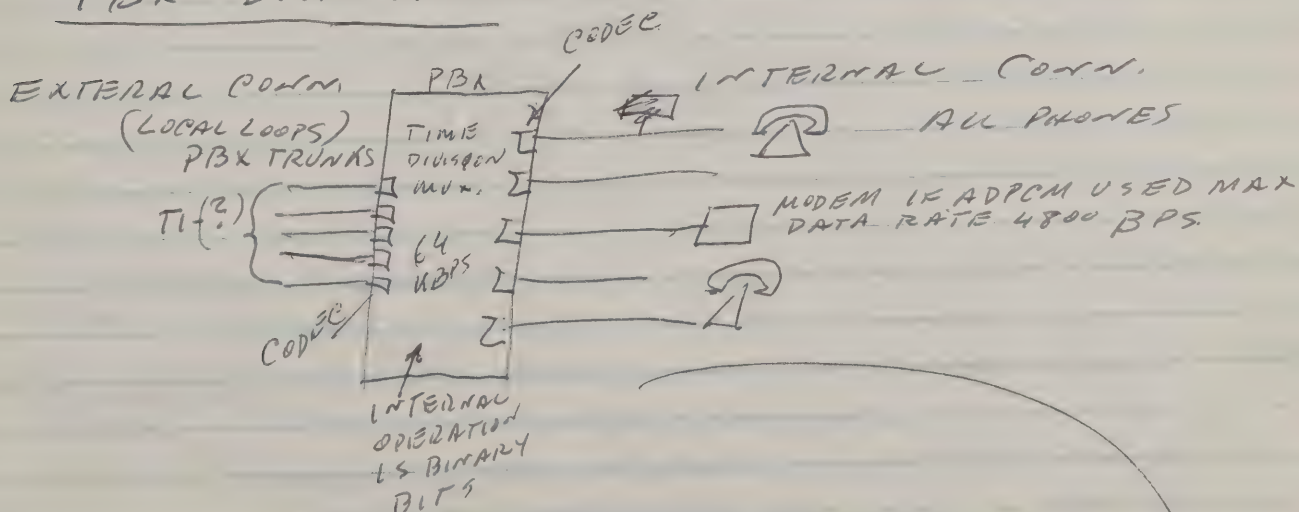 PBX
CODEC
EXTERAL CONN.
(LOCAL LOOPS)
PBX TRUNKS
T1 (?)
CODEC
PBX
TIME
DIVISION
MUX.
64
KBPS
INTERNAL
OPERATION
IS BINARY
BITS
INTERNAL CONN.
ALL PHONES
MODEM IF ADPCM USED MAX
DATA RATE 4800 BPS.